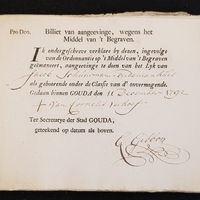 Pro Deo. Billiet van aangeevinge, wegens het
Middel van 't Begraven.
Ik ondergeschreven verklare by dezen, ingevolge
van de Ordonnantie op 't Middel van 't Begraven
geëmaneert, aangeevinge te doen van het Lyk van
Jacob
als gehoorende onder de Classe van d' onvermogende.
Gedaan binnen GOUDA den 12 December 1792
+ Van Cornelis
Ter Secretarye der Stad GOUDA,
geteekend op datum als boven.